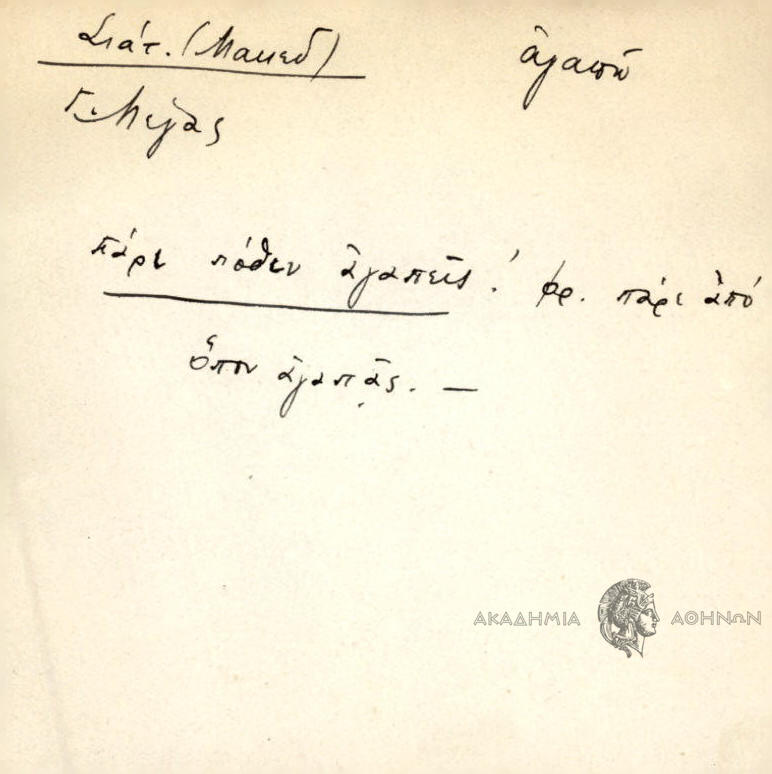 Σιάτ. (Μακεδ) ἀγαπῶ
Γ. Μέγας
πάρε πόθεν ἀγαπεῖς! φρ. πάρε ἀπό
ὅπου ἀγαπᾷς. —
ΑΚΑΔΗΜΙΑ ΑΘΗΝΩΝ